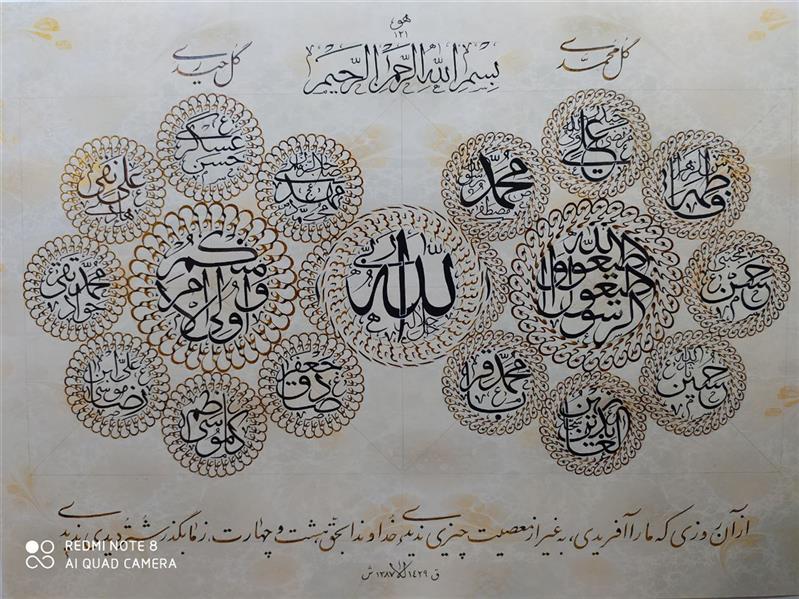 هو
۱۲۱
بسم الله الرحمن الرحیم
گل محمدی
گل حیدری
علی
محمد مصطفی
فاطمة الزهرا
حسن مجتبی
حسین
زین العابدین
محمد باقر
اطیعوا الله و اطیعوا الرسول
الله ربی جل جلاله
و اولی الامر منکم
جعفر صادق
موسی کاظم
علی ابن موسی رضا
محمد تقی جواد
علی نقی هادی
حسن عسکری
مهدی
از آن روزی که ما را آفریدی، به غیر از معصیت چیزی ندیدی، خداوندا بحق هشت و چهارت، ز ما بگذر شتر دیدی ندیدی
ق ۱۴۲۹ ۱۳۸۷ ش
REDMI NOTE 8
AI QUAD CAMERA